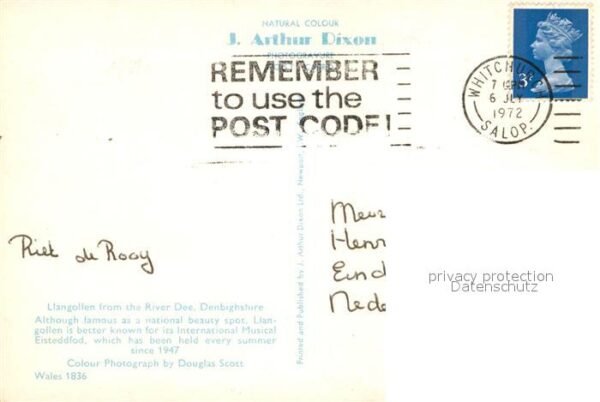 NATURAL COLOUR
J. Arthur Dixon
PHOTOGRAVURE
REMEMBER
to use the
POST CODE!
3P
WHITCHURCH
6 JLY
1972
SALOP.
Printed and Published by J. Arthur Dixon Ltd., Newport,
Riet de Rooy
Henr
Eind
Nede
privacy protection
Datenschutz
Llangollen from the River Dee, Denbighshire
Although famous as a national beauty spot, Llan-
gollen is better known for its International Musical
Eisteddfod, which has been held every summer
since 1947
Colour Photograph by Douglas Scott
Wales 1836